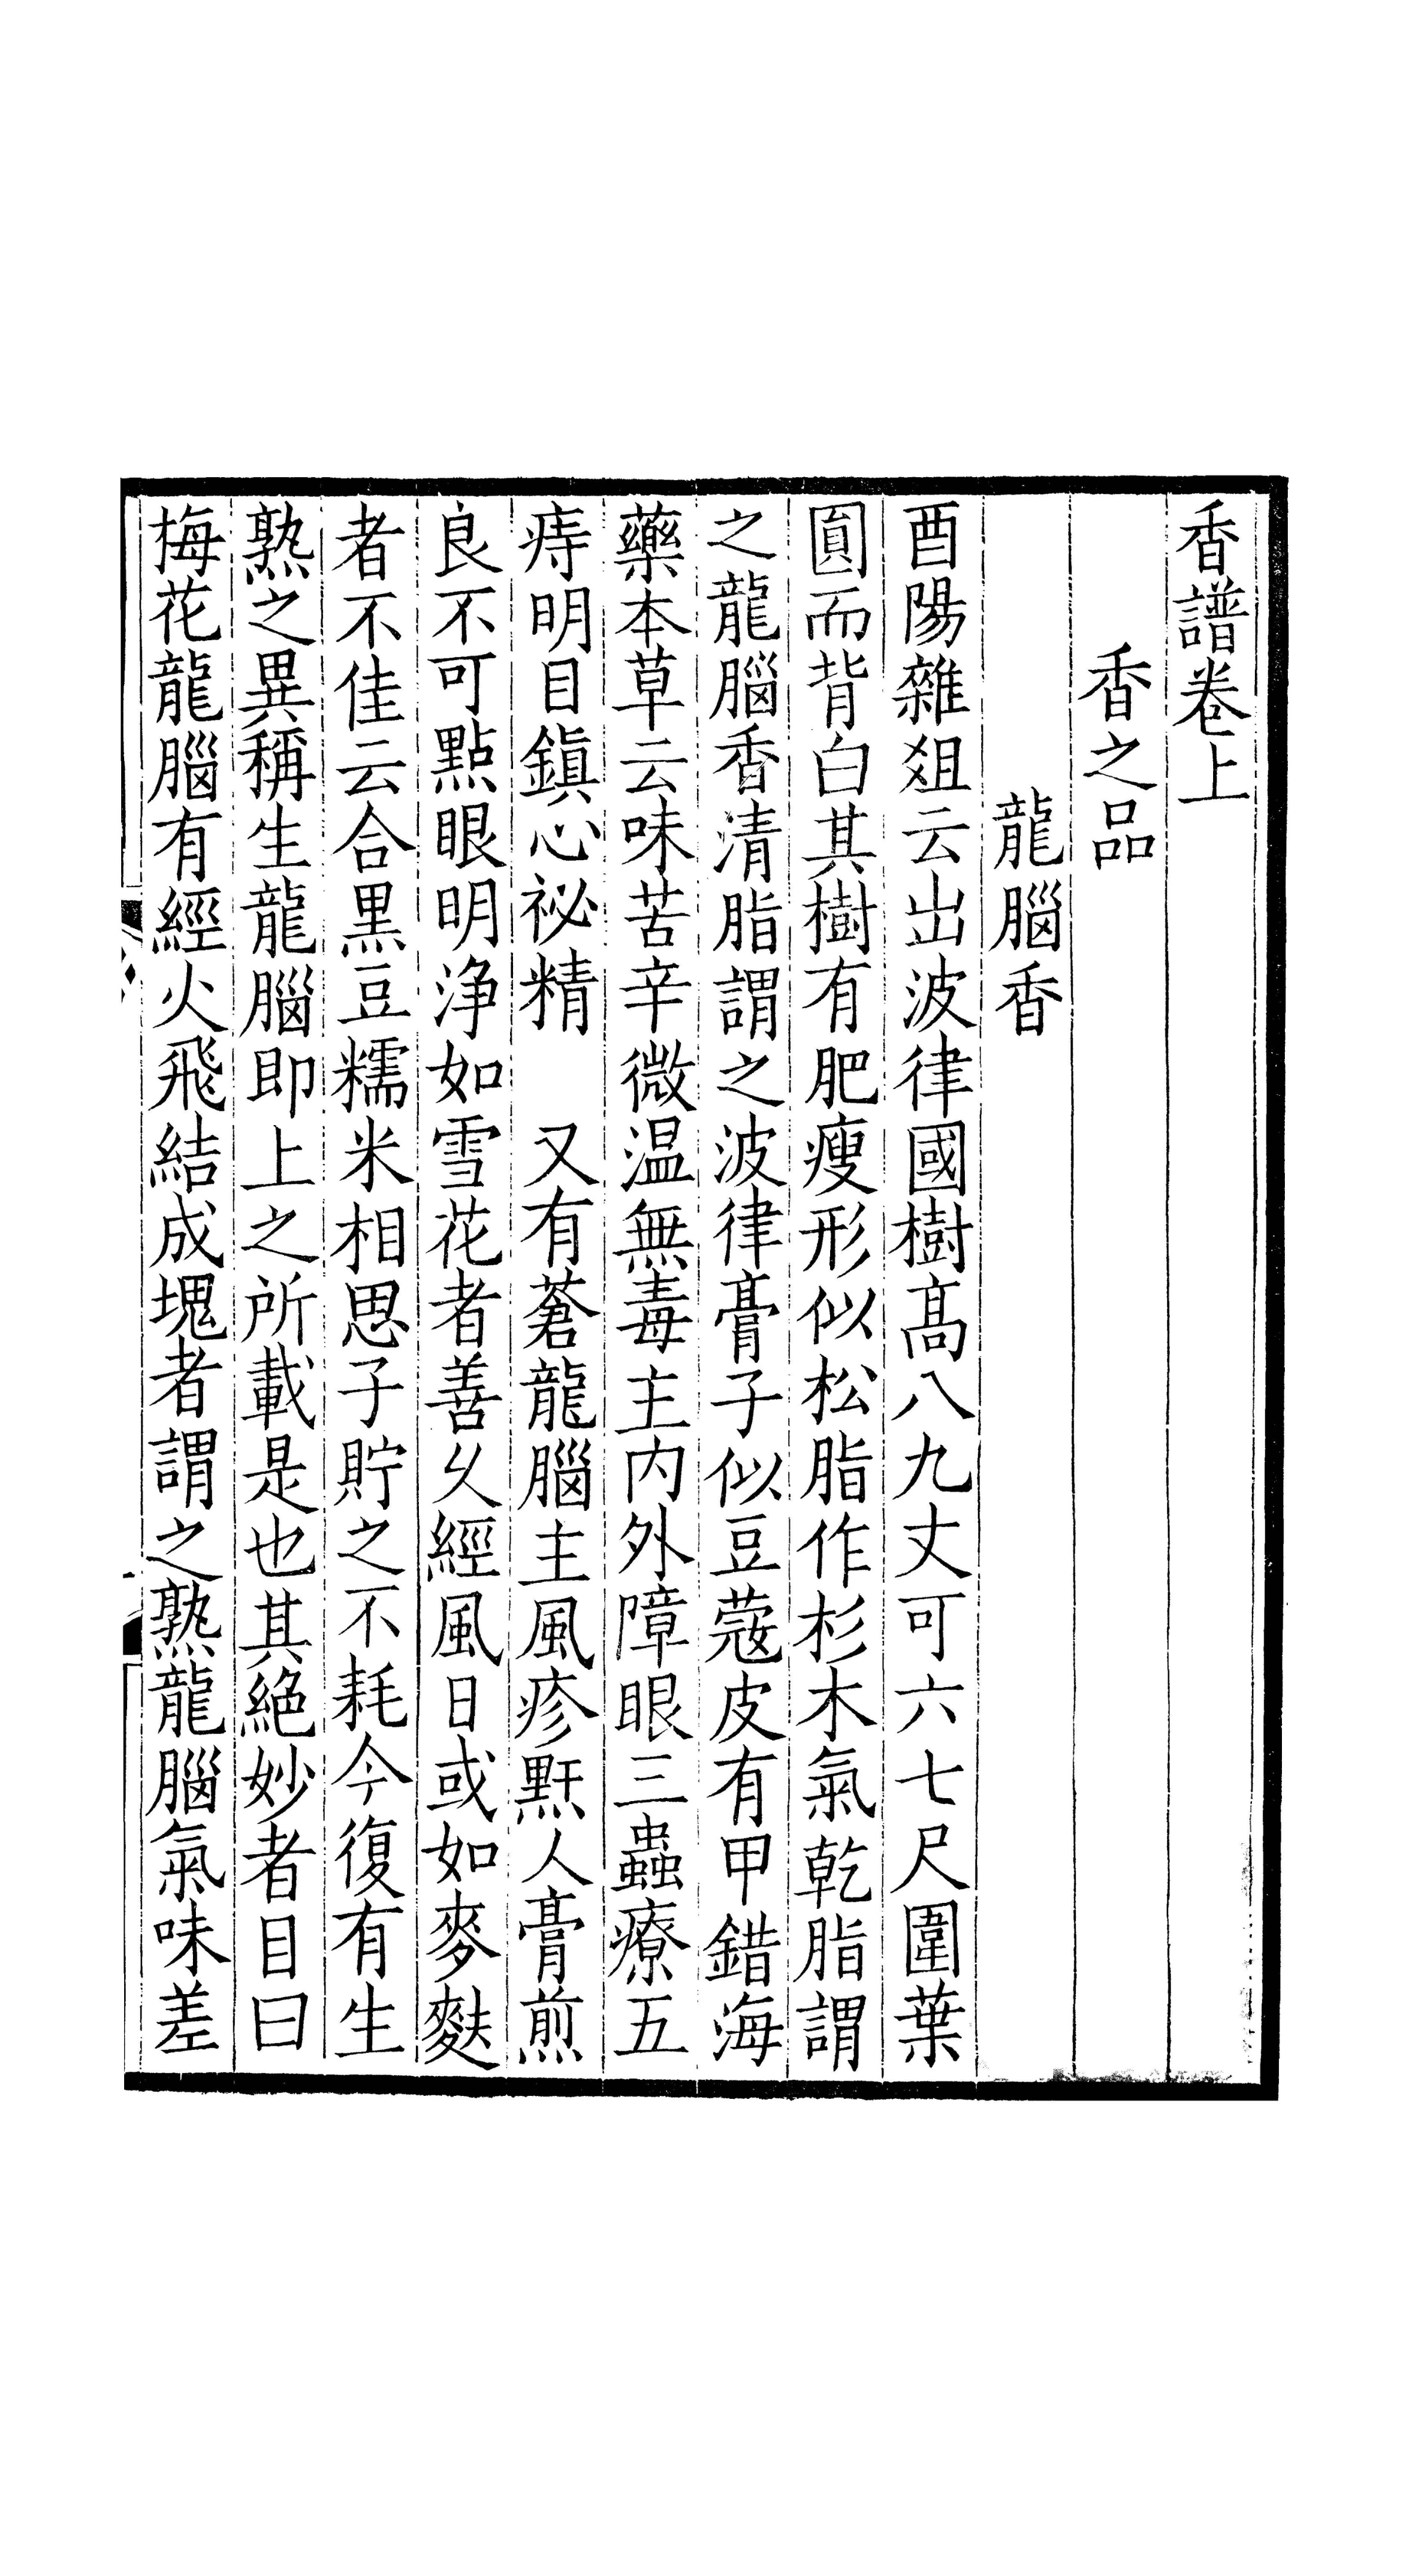 香譜卷上
香之品
龍腦香
酉陽雜爼云出波律國樹髙八九丈可六七尺圍葉
圓而背白其樹有肥瘦形似松脂作杉木氣乾脂謂
之龍腦香清脂謂之波律膏子似豆蔻皮有甲錯海
藥本草云味苦辛微温無毒主内外障眼三蟲療五
痔明目鎮心祕精　又有蒼龍腦主風疹䵟人膏煎
良不可㸃眼明浄如雪花者善乆經風日或如麥麩
者不佳云合黒豆糯米相思子貯之不耗今復有生
熟之異稱生龍腦即上之所載是也其絶妙者目曰
梅花龍腦有經火飛結成塊者謂之熟龍腦氣味差